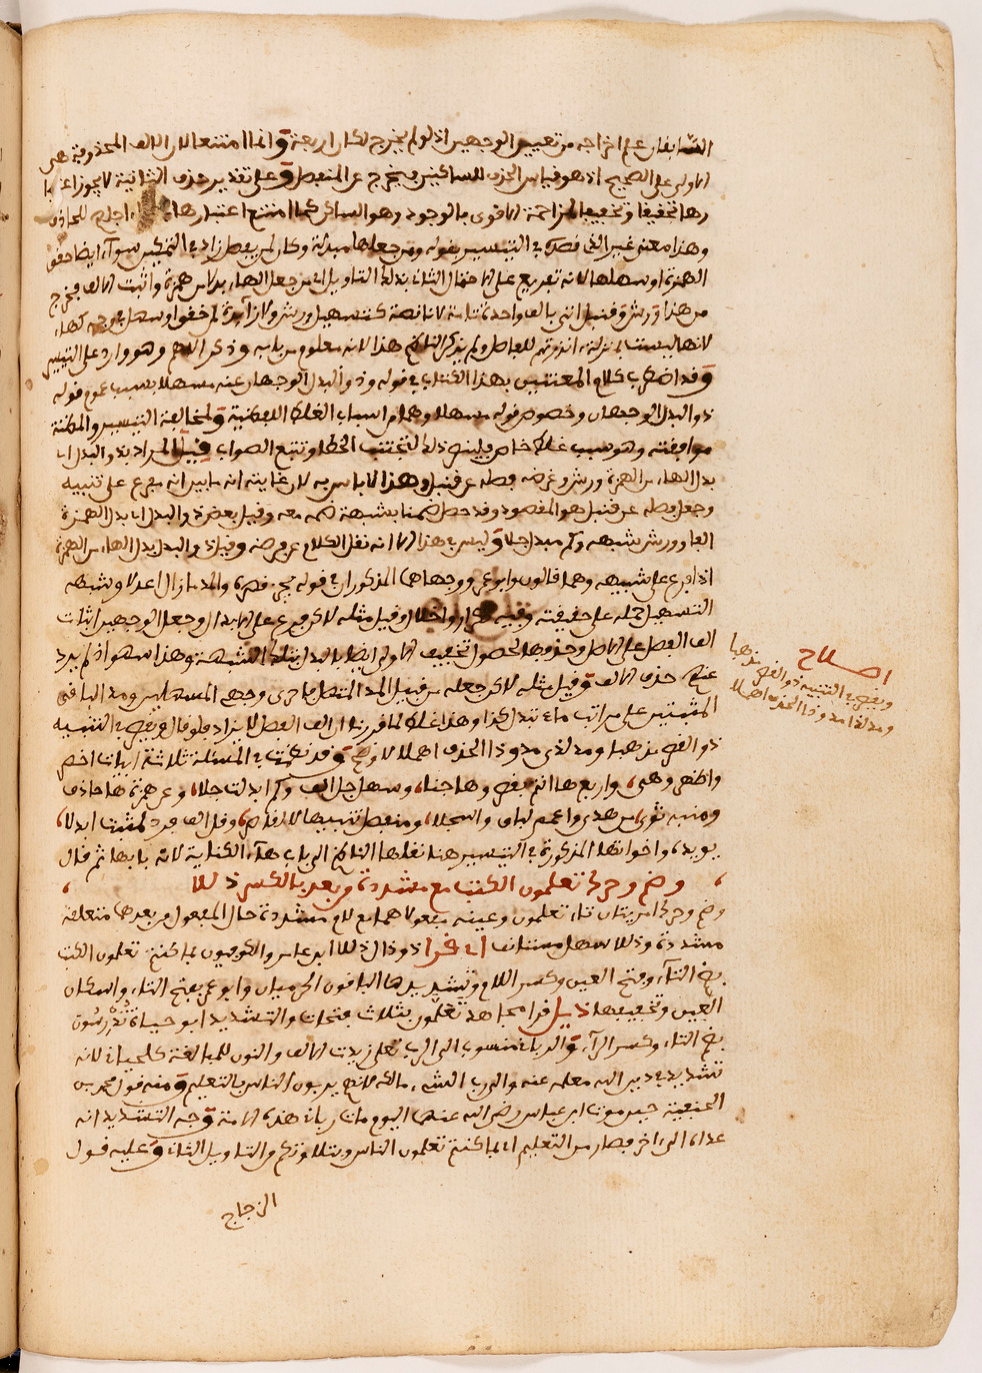 السابقان على اخراجه من تعيير الوجهين اذ لو لم يخرج لكان اربعة وانما امتنعا لان الالف المحذوفة هي
الاولى على الصحيح اذ هو قياس الحذف للساكنين فيخرج عن المنفصل وعلى تقدير حذف الثانية لا يجوز اعتبا
رها تخفيفا وتخفيف المزاحمة الاقوى بالوجود وهو الساكن كما امتنع اعتبارها
وهذا معنى غير الذي قصره في التيسير بقوله ومن جعلها مبدلة وكان ممن يفصل زاد في التمكين سوآء ايضا حقق
الهمزة او سهلها لانه تفريع على الاحتمال الثاني بدليل التاويل اي من جعل الهاء بدلا من همزة واثبت الالف فيخرج
من هذا ورش وقنبل اتى بالف واحدة ثابتة لا ناقصة كتسهيل ورش ولا زآئدة لمن حقق او سهل في وجه كهاء
لانها ليست منزلة انذرتهم للفاصل ولم يذكر الناظم هذا لانه معلوم من بابه وذكر الاهم وهو وارد على التيسير
وقد اضطرب كلام المعتنين بهذا الكتاب في قوله وذو البدل الوجهان عنه مسهلا بسبب عموم قوله
ذو البدل الوجهان وخصوص قوله مسهلا وهما من اسباب الغلط اللفظية ولمخالفة التيسير والمظنة
موافقته وهو سبب غلط خاص فلينبه ذلك لتجتنب الخطا وتتبع الصواب قيل المراد بذو البدل اي
بدل الهاء من الهمزة ورش وغرضه فصله عن قنبل وهذا لا باس به لان غايته انه ما بين انه مفرع على تنبيه
وجعل فصله عن قنبل هو المقصود وقد حصل ضمنا بشبهة ضمه معه وقيل بعض ذو البدل اي بدل الهمزة
الفا وورش بشبهه وكم مبدل جلا وليس في هذا الا انه نقل الكلام عن غرضه وقيل ذو البدل بدل الهاء من الهمزة
اذا فرع على شبيهه وهما قالون وابو عمرو ووجهاهما المذكوران في قوله يجز قصره والمد ما زال اعدلا وشبهه
التسهيل حمله على حقيقته وفيه تكرار واخلال وقيل مثله لاكن فرع على الابدال وجعل الوجهين اثبات
الف الفصل على الاصل وحذفها لحصول تخفيف الاولى ايضا بالبدل بتلك الشبهة وهذا سهو اذ لم يرد
عنهما حذف الالف وقيل مثله لاكن جعله من قبيل المد المتصل فاجرى وجهي المسهلين ومد الباقي
المثبتين على مراتب ماء تبدل كذا وهذا غلط لما قررنا ان الف الفصل لا يزاد فلو قال وفي التنبيه
ذو القصر مذهبا ومد لذي مد وذا الحذف اهملا لاوضح وقد نظمت في المسئلة ثلاثة ابيات اخصر
واظهر وهي، واربع ها انتم بقصر وها جنا، وسهل جل الف وكم ابدلت جلا، وعن همزة ها حاذف
ومنبه ثوى من هدى واعمم لباق واسجلا، ومنفصل تنبيها للفاصر، وقل الف فرد لمثبت ابدلا،
يويده واخواتها المذكورة في التيسير هنا نقلها الناظم الى باب هاء الكناية لانه بابها ثم قال
، وضم وحرك تعلمون الكتب مع مشددة من بعد بالكسر ذللا ،
وضم وحرك امريتان تاء تعلمون وعينه مفعولاهما مع لام مشددة حال المفعول من بعدها متعلقه
مشددة وذللا سهل مستانف اي قرا ذو ذال ذللا ابن عامر والكوفيون بما كنتم تعلمون الكتب
بضم التآء وفتح العين وكسر اللام وتشديدها الباقون الحرميان وابو عمرو بفتح التاء واسكان
العين وتخفيفها ذيل قرا مجاهد تعلمون بثلاث فتحات والتشديد ابو حيوة تدرسون
بضم التاء وكسر الرآء والرباني منسوب الى الرب تعلى زيدت الالف والنون للمبالغة كلحياني لانه
شديد في دين الله معلم عنه والرب الشيء مالكه فانهم يربون الناس بالتعليم ومنه قول محمد بن
الحنفية حين موت ابن عباس رضي الله عنهما اليوم مات رباني هذه الامة وجه التشديد انه
عداه الى اخر فصار من التعليم اي بما كنتم تعلمون الناس وبتلاوتكم والتاويل الثاني وعليه قول
الزجاج
اصلاح
وبقصر في التنبيه ذو القصر مذهبا
ومد لذا مد وذا الحذف اهملا